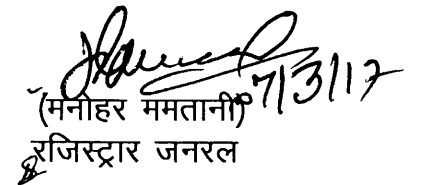 7/3/17
(मनोहर ममतानी)
रजिस्ट्रार जनरल